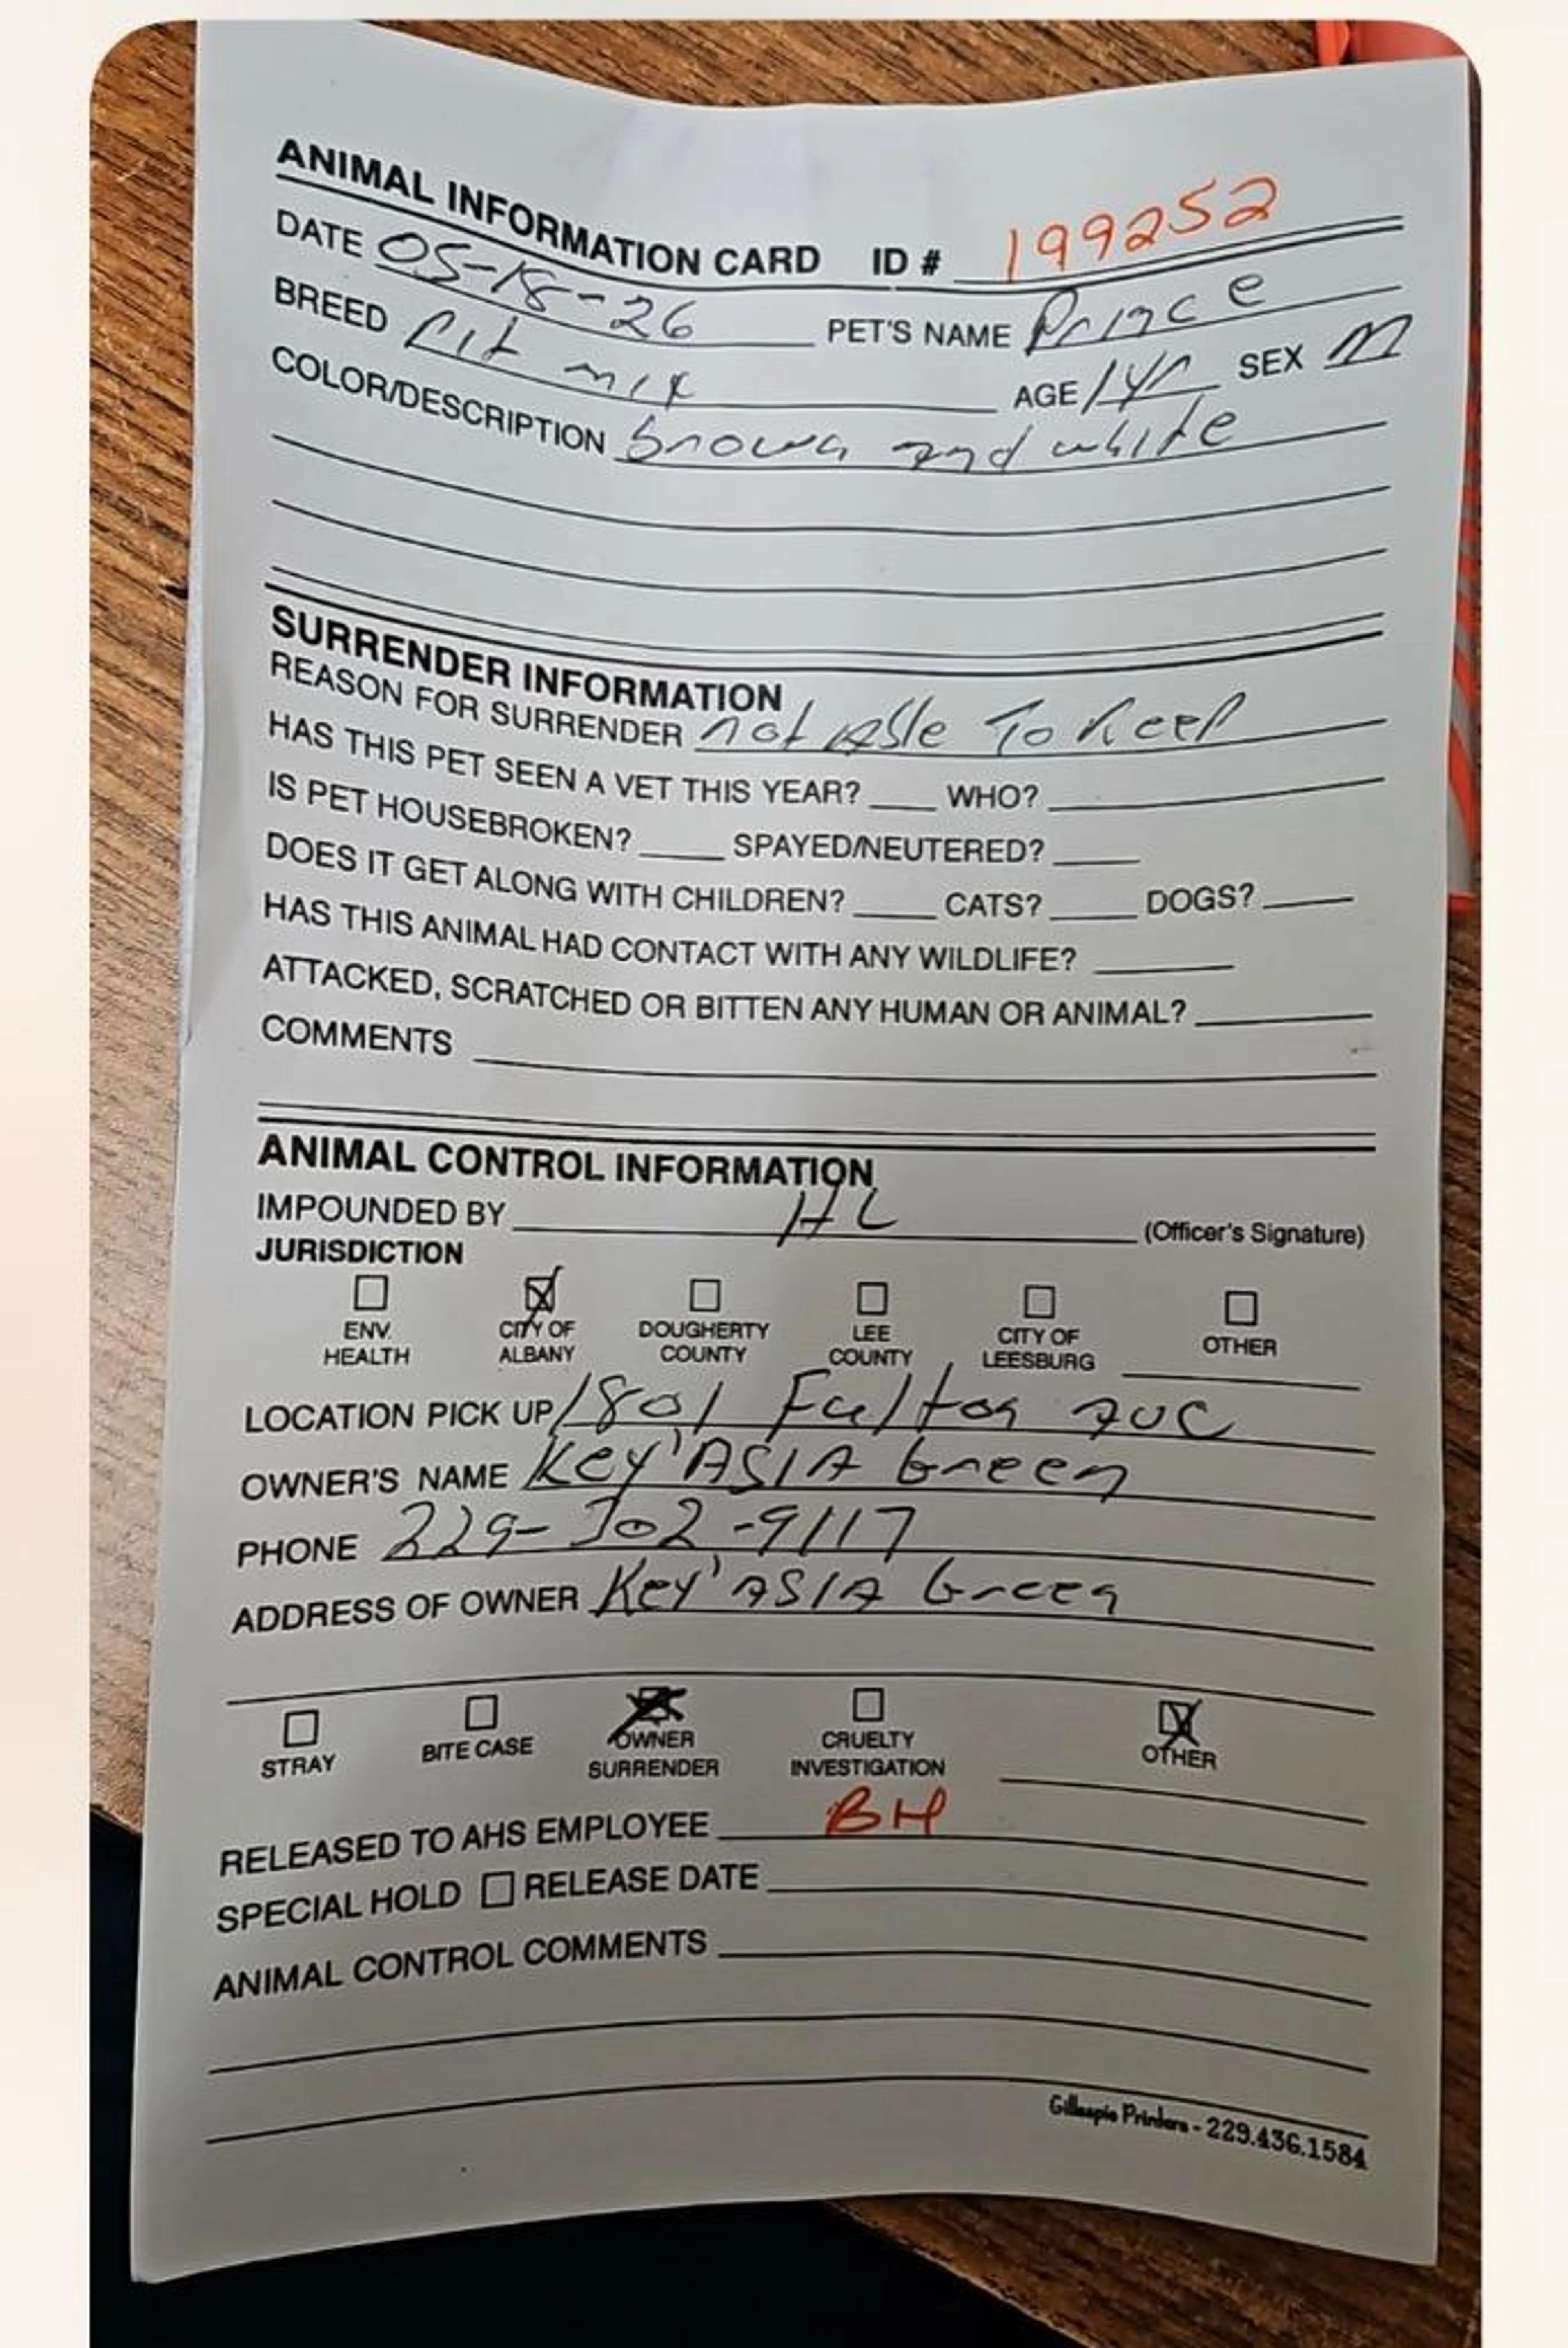 ANIMAL INFORMATION CARD ID # 199252
DATE 05-18-26 PET'S NAME Prince
BREED Pit mix AGE 1yr SEX M
COLOR/DESCRIPTION brown and white
SURRENDER INFORMATION
REASON FOR SURRENDER not Able To Keep
HAS THIS PET SEEN A VET THIS YEAR? WHO?
IS PET HOUSEBROKEN? SPAYED/NEUTERED?
DOES IT GET ALONG WITH CHILDREN? CATS? DOGS?
HAS THIS ANIMAL HAD CONTACT WITH ANY WILDLIFE?
ATTACKED, SCRATCHED OR BITTEN ANY HUMAN OR ANIMAL?
COMMENTS
ANIMAL CONTROL INFORMATION
IMPOUNDED BY HL (Officer's Signature)
JURISDICTION
ENV. HEALTH CITY OF ALBANY DOUGHERTY COUNTY LEE COUNTY CITY OF LEESBURG OTHER
LOCATION PICK UP 1801 Fulton Ave
OWNER'S NAME Key'ASIA Green
PHONE 229-302-9117
ADDRESS OF OWNER Key'ASIA Green
STRAY BITE CASE OWNER SURRENDER CRUELTY INVESTIGATION OTHER
RELEASED TO AHS EMPLOYEE BH
SPECIAL HOLD RELEASE DATE
ANIMAL CONTROL COMMENTS
Gillespie Printers - 229.436.1584